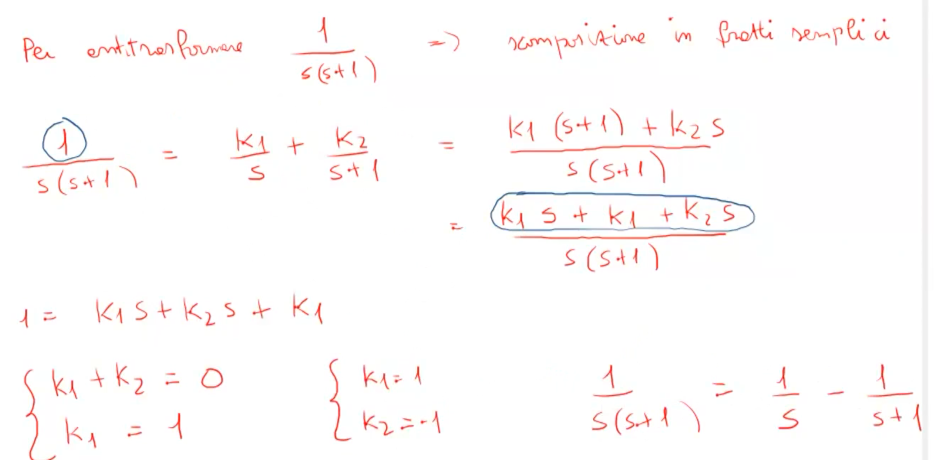 Per antitrasformare 1/(s(s+1)) => scomposizione in fratti semplici
1/(s(s+1)) = k1/s + k2/(s+1) = (k1 (s+1) + k2 s)/(s(s+1))
= (k1 s + k1 + k2 s)/(s(s+1))
1 = k1 s + k2 s + k1
{ k1 + k2 = 0 { k1 = 1 1/(s(s+1)) = 1/s - 1/(s+1)
k1 = 1 k2 = -1